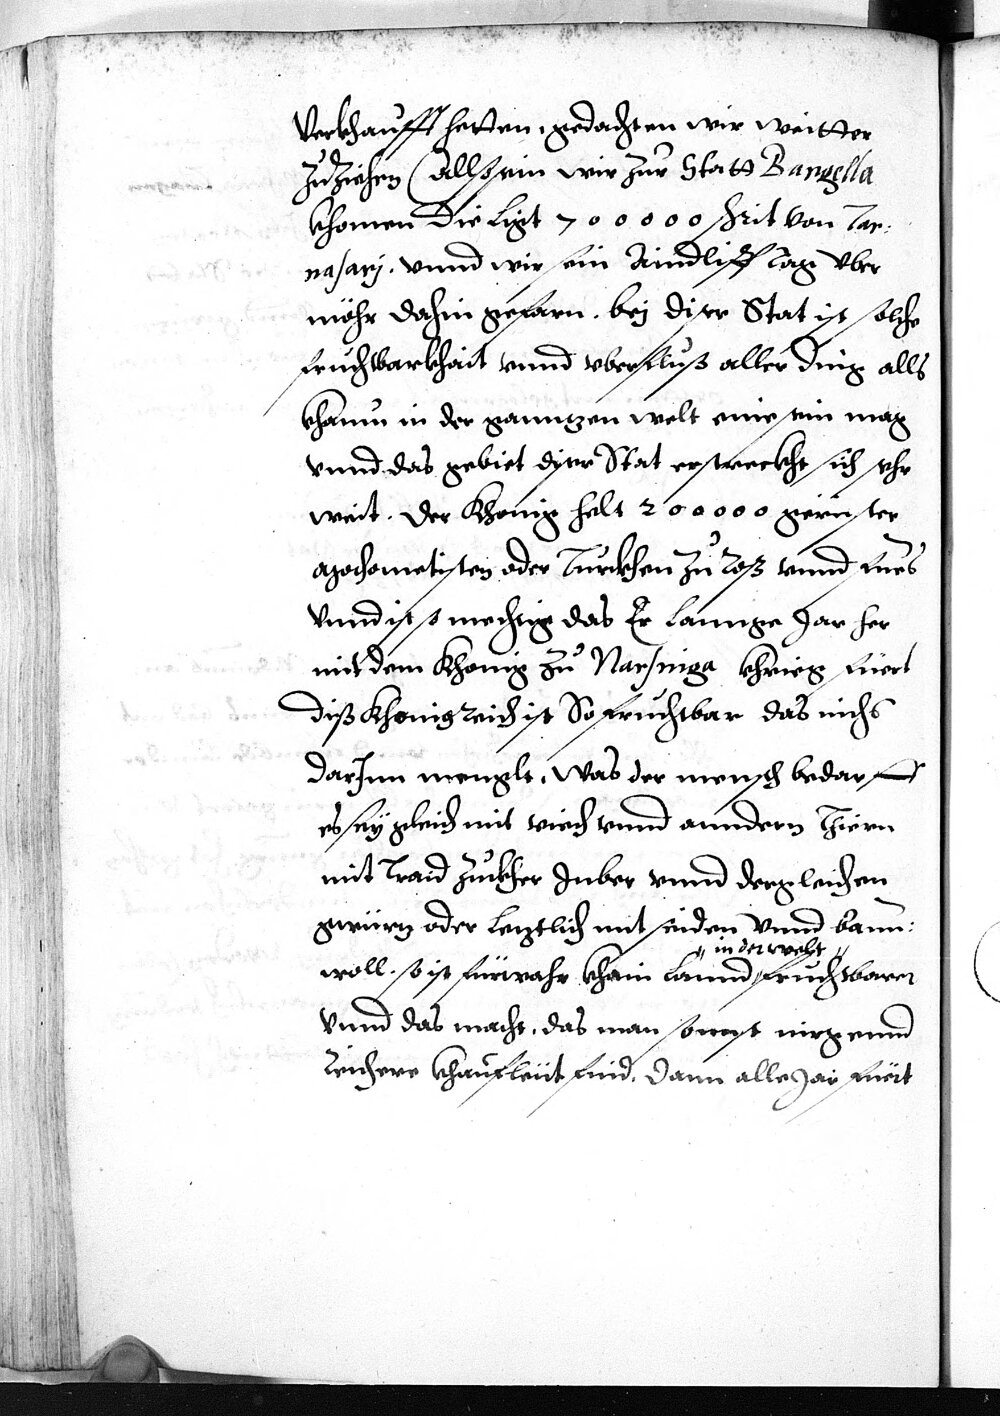 verkhaufft hetten, gedachten wir weitter
zuziehen (allso sein wir zur Statt Bangella
khomen Die ligt 700000 schrit von Tar:
nasarj. vnnd wir sein Aindliff tag vber
möhr dahin gefarn. bej diser Stat ist solche
fruchtbarkhait vnnd vberfluß aller ding alls
khaum in der ganntzen welt eine sein mag
vnnd das gebiet diser Stat erstreckht sich sehr
weit. der Khonig helt 200000 gerüster
Machometisten oder Turckhen zu Roß vnnd fues
vnnd ist so mechtig das Er lannge Jar her
mit dem Khonig zu Narsinga khrieg füert
diß Khonigreich ist So fruchtbar das nichs
darJnn menglt, was der mensch bedarff
es sey gleich mit viech vnnd anndern Thiern
mit Traid Zuckher Jnber vnnd dergleichen
gwürz oder letztlich mit seiden vnnd baum:
woll. so ist fürwahr khain lannd "in der welt" fruchtbarer
vnnd das macht, das man sonnst nirgennd
Reichere khaufleüt find. dann alle Jar füert